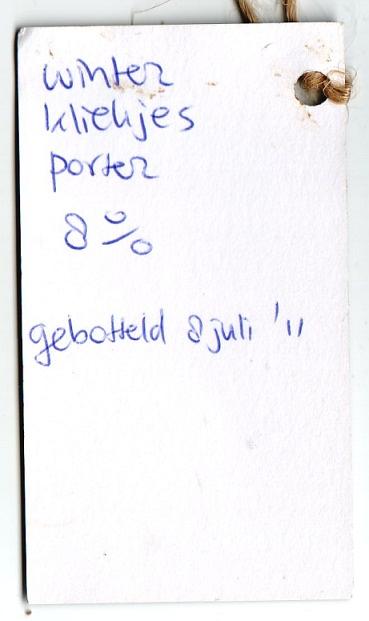 winter
kliekjes
porter
8 %
gebotteld 8 juli '11